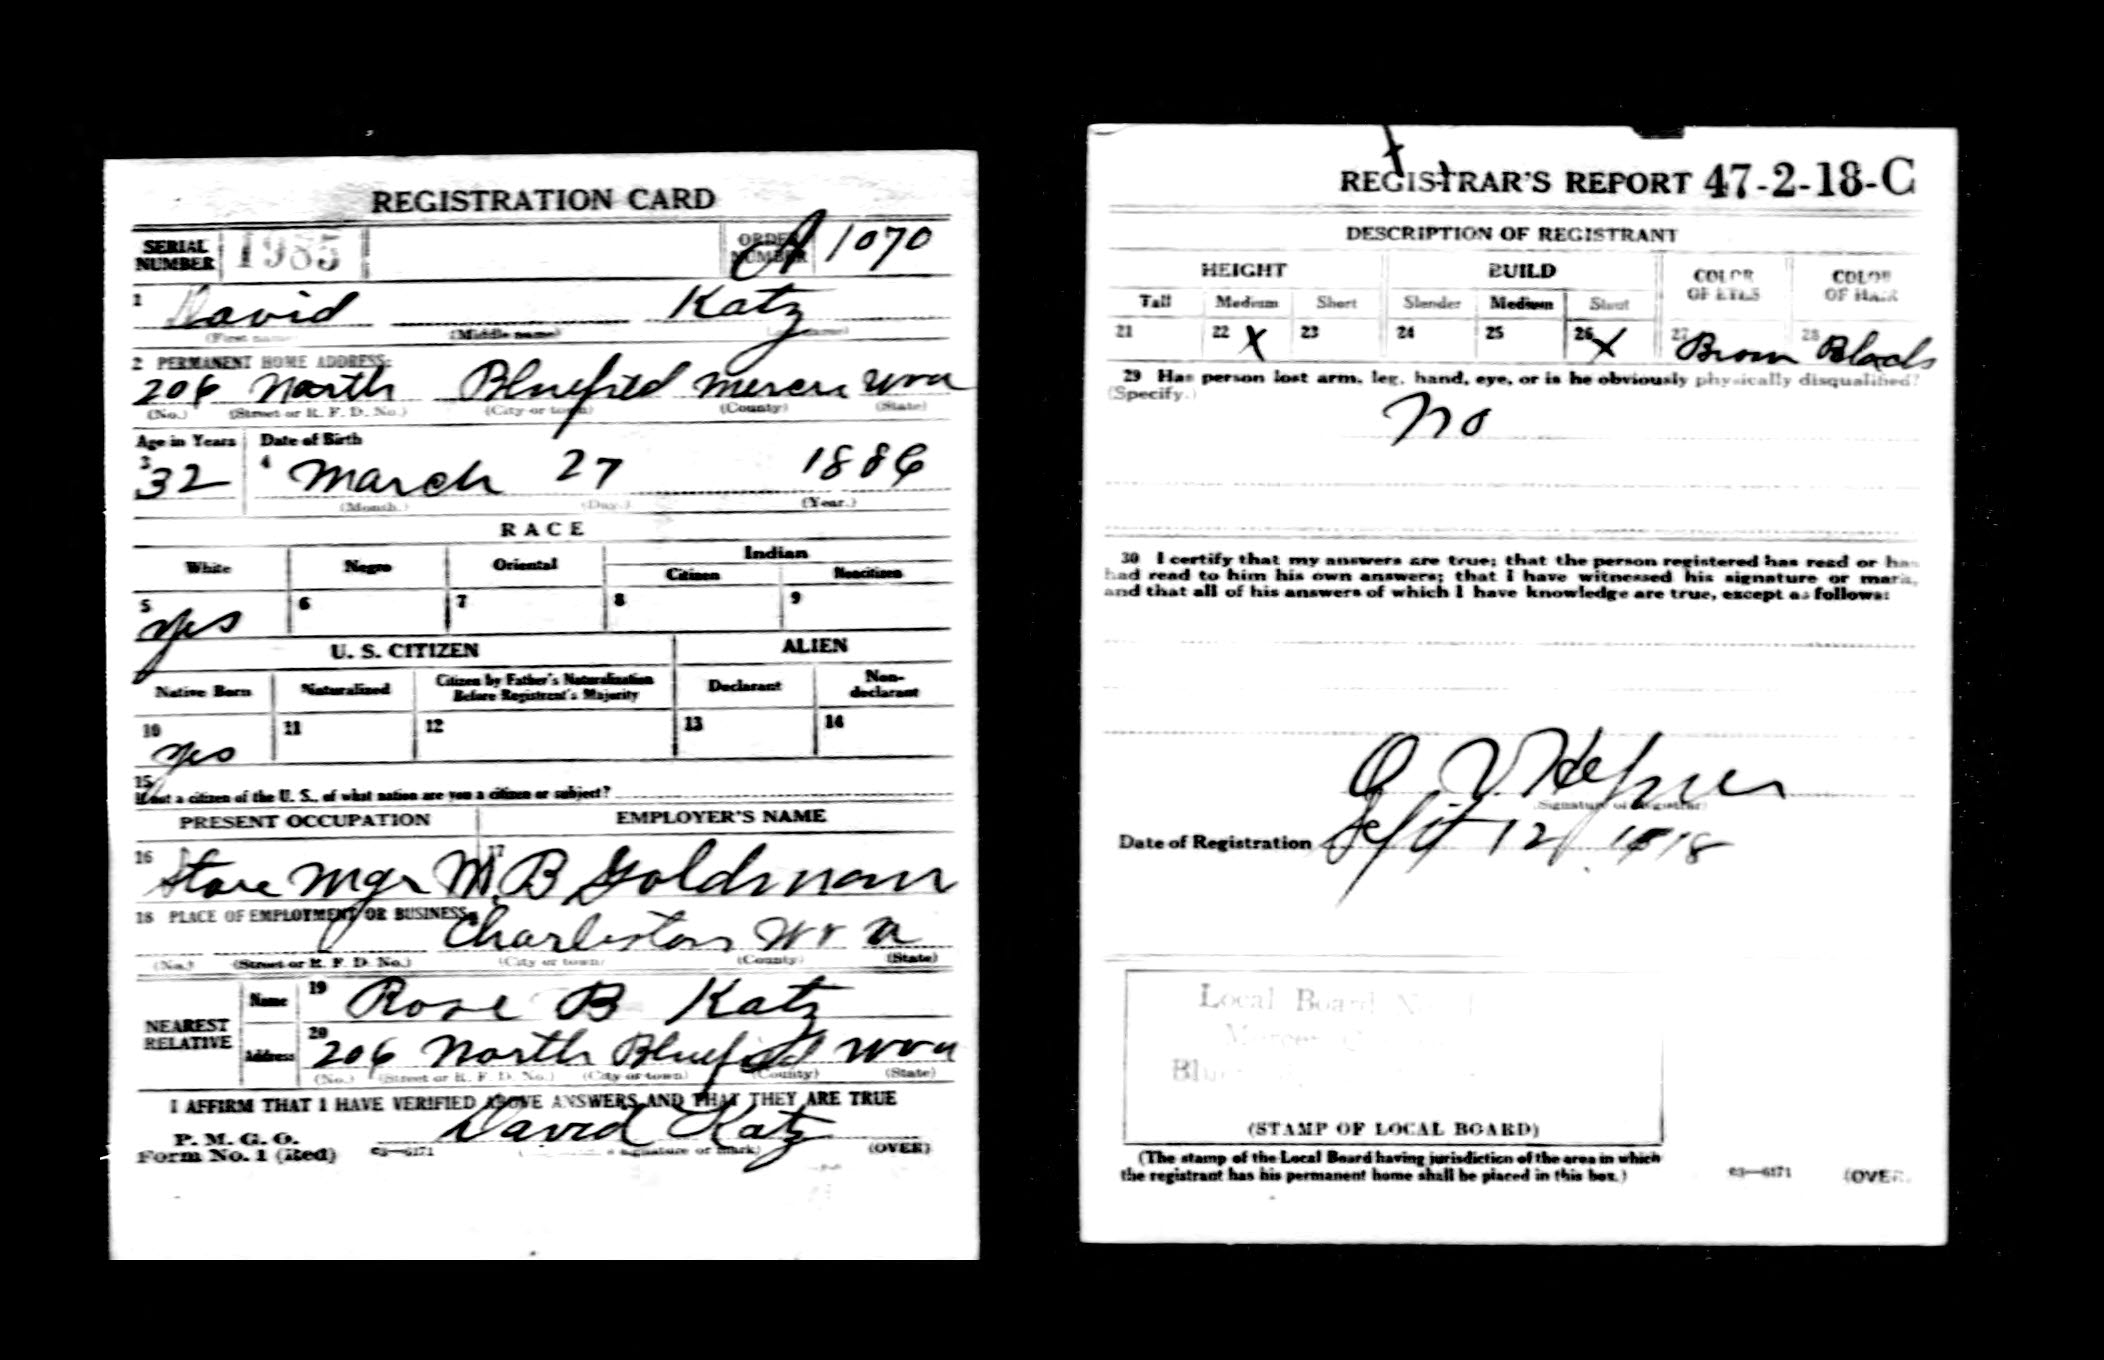 REGISTRATION CARD
SERIAL NUMBER 1985 ORDER NUMBER A 1070
1 David Katz
(First name) (Middle name) (Last name)
2 PERMANENT HOME ADDRESS:
206 North Bluefield Mercer W Va
(No.) (Street or R. F. D. No.) (City or town) (County) (State)
Age in Years Date of Birth
3 32 4 March 27 1886
(Month.) (Day.) (Year.)
RACE
White Negro Oriental Indian
Citizen Noncitizen
5 Yes 6 7 8 9
U. S. CITIZEN ALIEN
Native Born Naturalized Citizen by Father's Naturalization Before Registrant's Majority Declarant Non-declarant
10 Yes 11 12 13 14
15 If not a citizen of the U. S., of what nation are you a citizen or subject?
PRESENT OCCUPATION EMPLOYER'S NAME
16 Store Mgr 17 M. B Goldman
18 PLACE OF EMPLOYMENT OR BUSINESS:
Charleston W V a
(No.) (Street or R. F. D. No.) (City or town) (County) (State)
NEAREST RELATIVE Name 19 Rose B Katz
Address 20 206 North Bluefield W Va
(No.) (Street or R. F. D. No.) (City or town) (County) (State)
I AFFIRM THAT I HAVE VERIFIED ABOVE ANSWERS AND THAT THEY ARE TRUE
P. M. G. O.
Form No. 1 (Red) 03—6171 David Katz (OVER)
(Signature or mark)
REGISTRAR'S REPORT 47-2-18-C
DESCRIPTION OF REGISTRANT
HEIGHT BUILD COLOR OF EYES COLOR OF HAIR
Tall Medium Short Slender Medium Stout
21 22 X 23 24 25 26 X 27 Brown 28 Black
29 Has person lost arm, leg, hand, eye, or is he obviously physically disqualified?
(Specify.)
No
30 I certify that my answers are true; that the person registered has read or has
had read to him his own answers; that I have witnessed his signature or mark,
and that all of his answers of which I have knowledge are true, except as follows:
(Signature of Registrar)
Date of Registration Sept 12 1918
Local Board
(STAMP OF LOCAL BOARD)
(The stamp of the Local Board having jurisdiction of the area in which
the registrant has his permanent home shall be placed in this box.)
03—6171 (OVER)